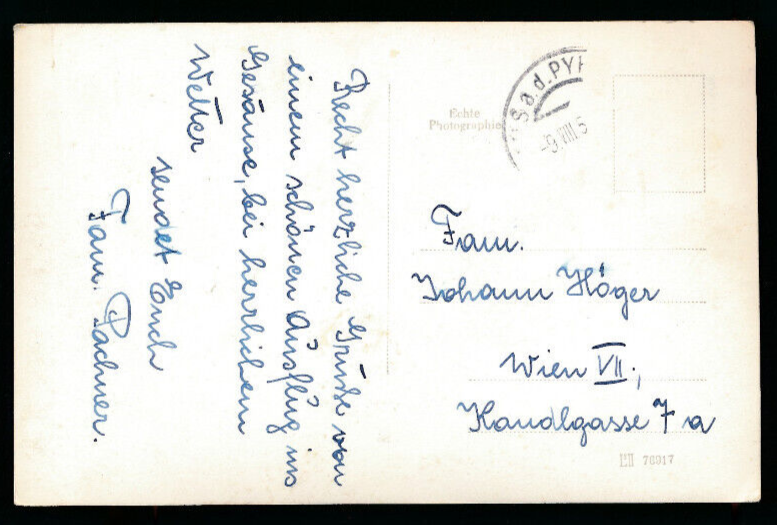 Recht herzliche Grüße von
einem schönen Ausflug ins
Gesäuse, bei herrlichem
Wetter
sendet Euch
Fam. Pachner.
Echte
Photographie
S a.d. PY
-9.VIII.5
Fam.
Johann Höger
Wien VII.,
Kandlgasse 7a
76917